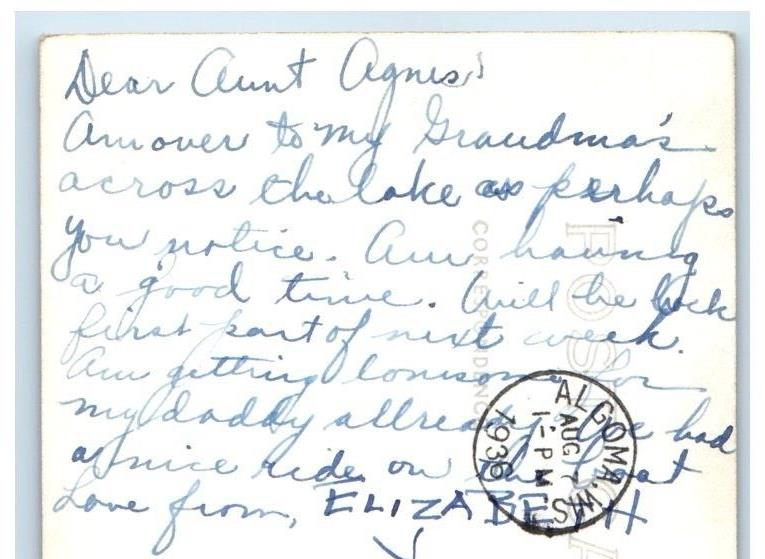 Dear Aunt Agnes:
Am over to my Grandma's
across the lake as perhaps
you notice. Am having
a good time. Will be back
first part of next week.
Am getting lonesome for
my daddy allready. We had
a nice ride on the boat
Love from, ELIZABETH
CORRESPONDENCE
POST
ALGOMA, WIS.
AUG 7
1-PM
1936